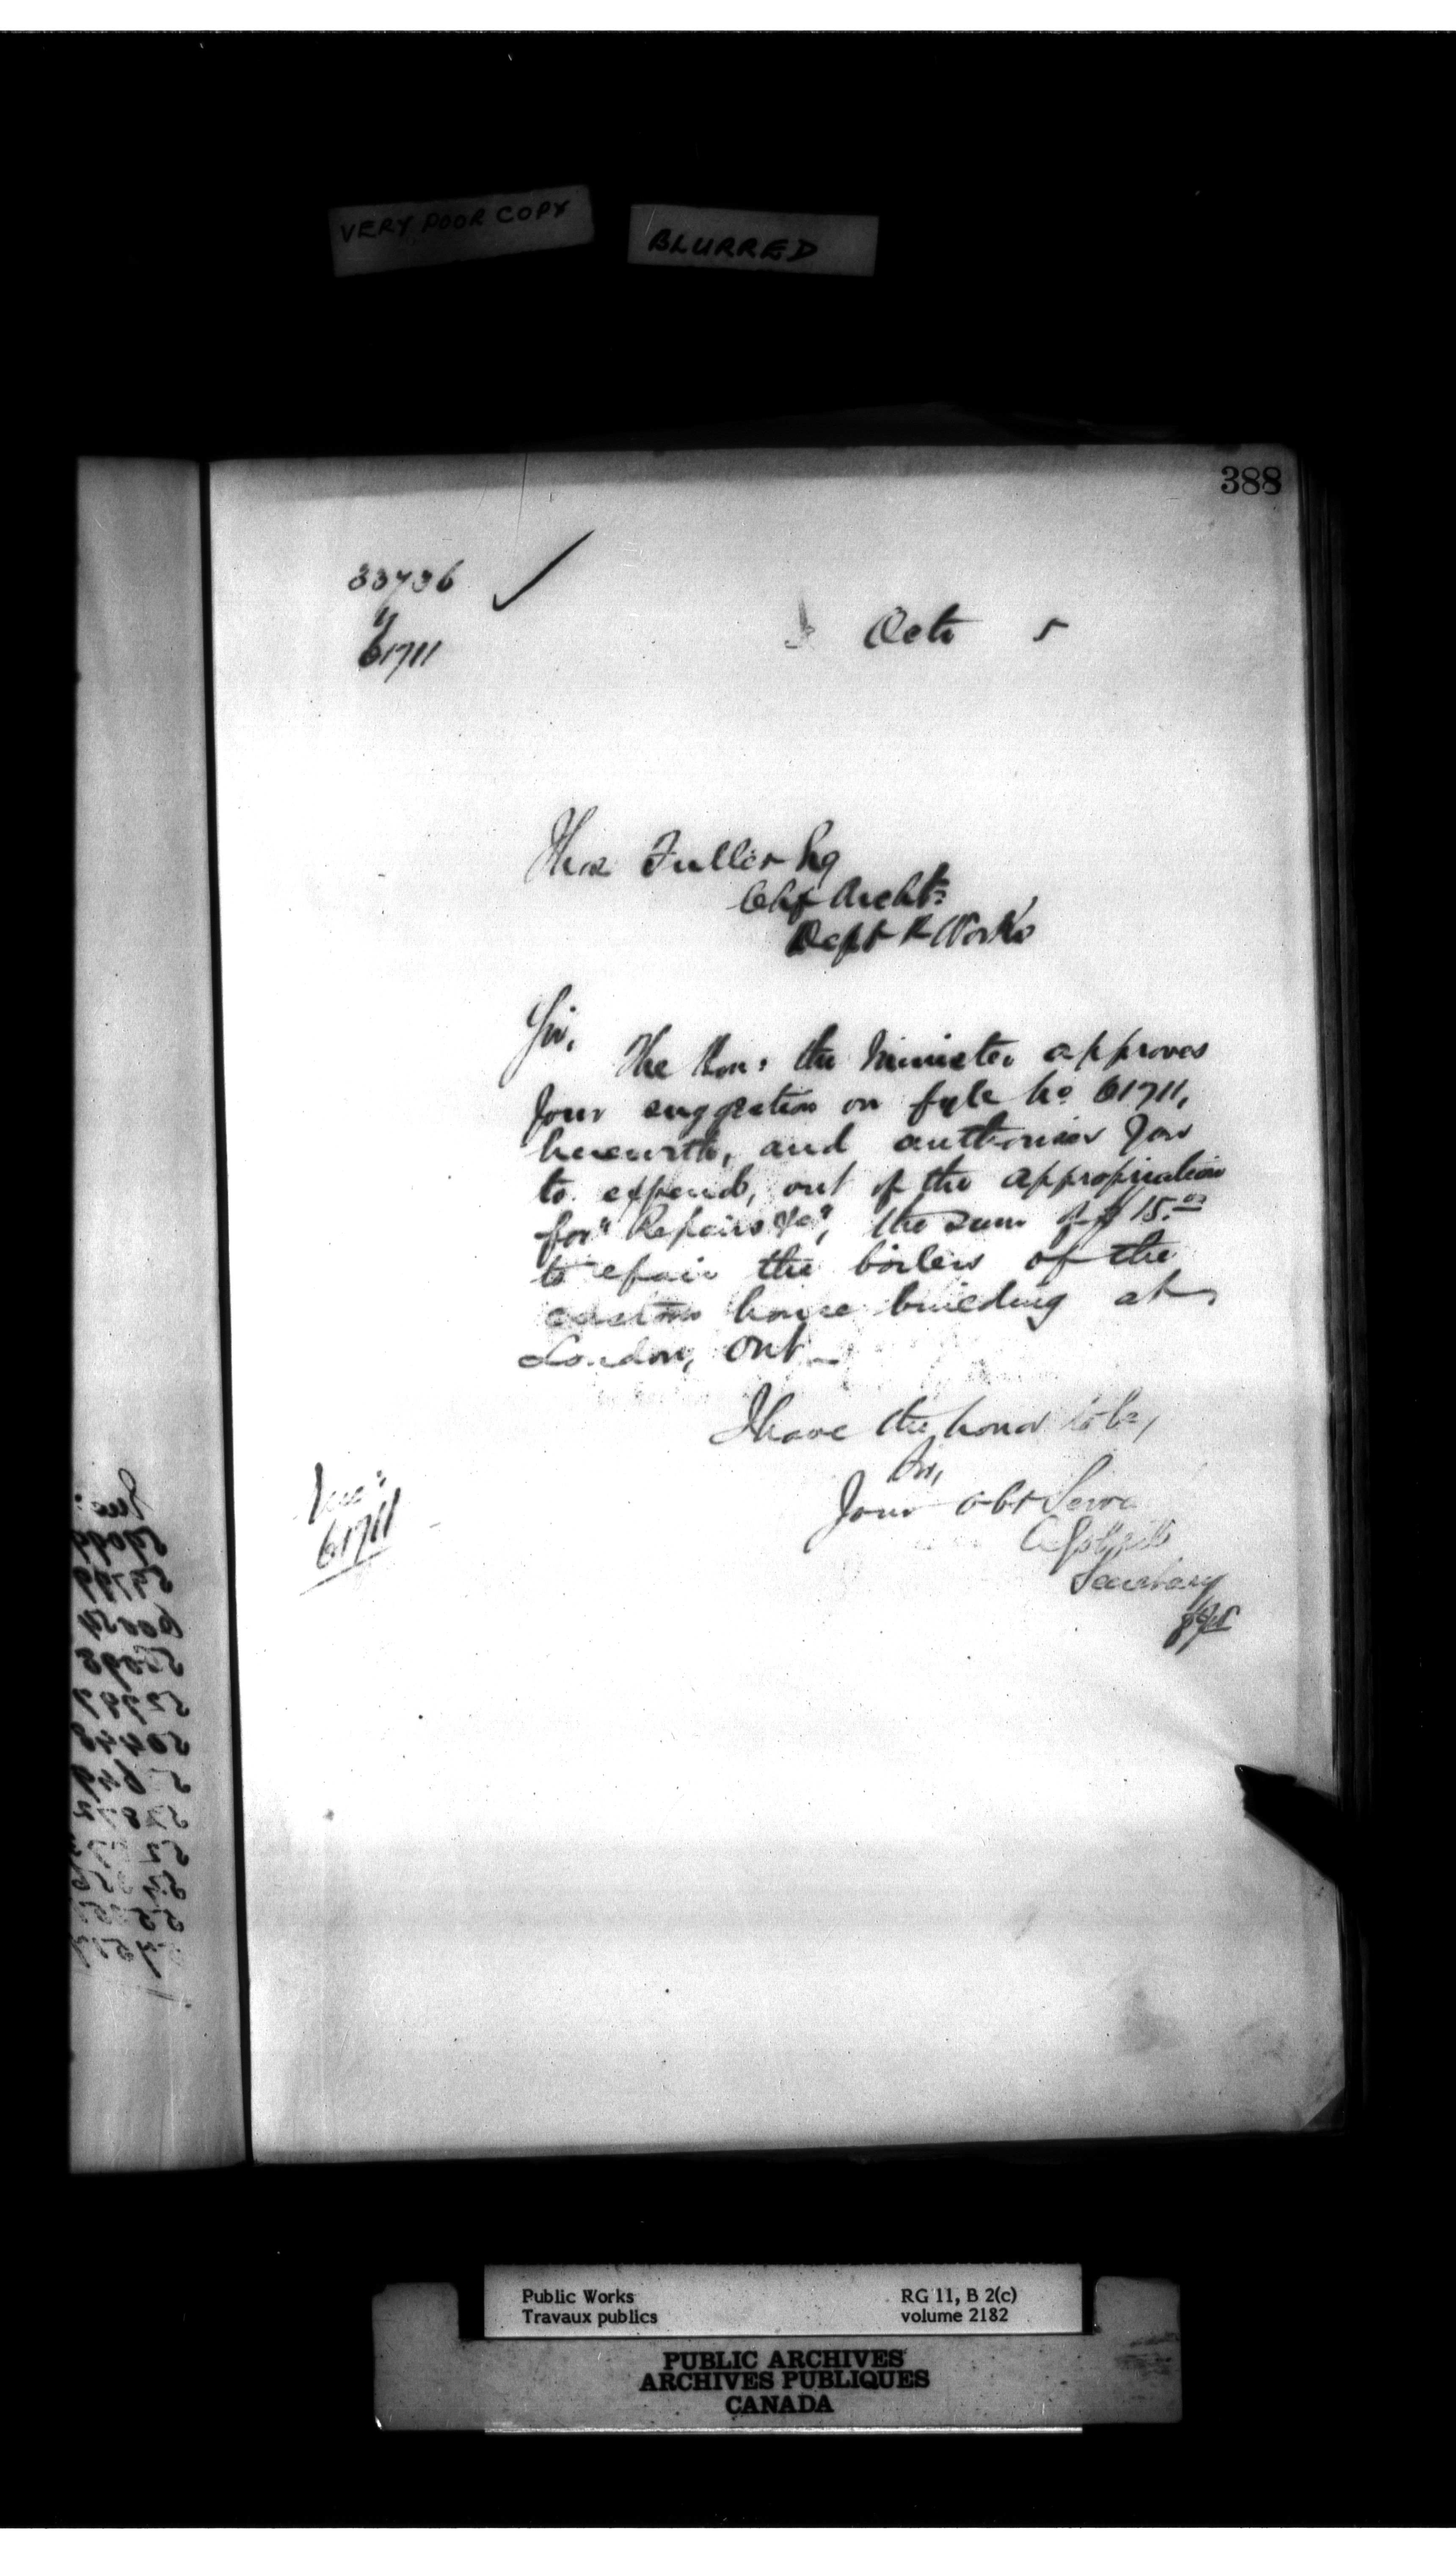 VERY POOR COPY
BLURRED
388
33736
61711
Octr 5
Thos Fuller Esq
Chf Archt
Dept P Works
Sir,
The Hon: the Minister approves
your suggestion on fyle No 61711,
herewith, and authorises you
to expend, out of the appropriation
for "Repairs &c", the sum of $15.00
to repair the boilers of the
custom house building at
London, Ont_
I have the honor to be,
Sir,
Your obt Serv
Secretary
Enc:
61711
Public Works
Travaux publics
RG 11, B 2(c)
volume 2182
PUBLIC ARCHIVES
ARCHIVES PUBLIQUES
CANADA